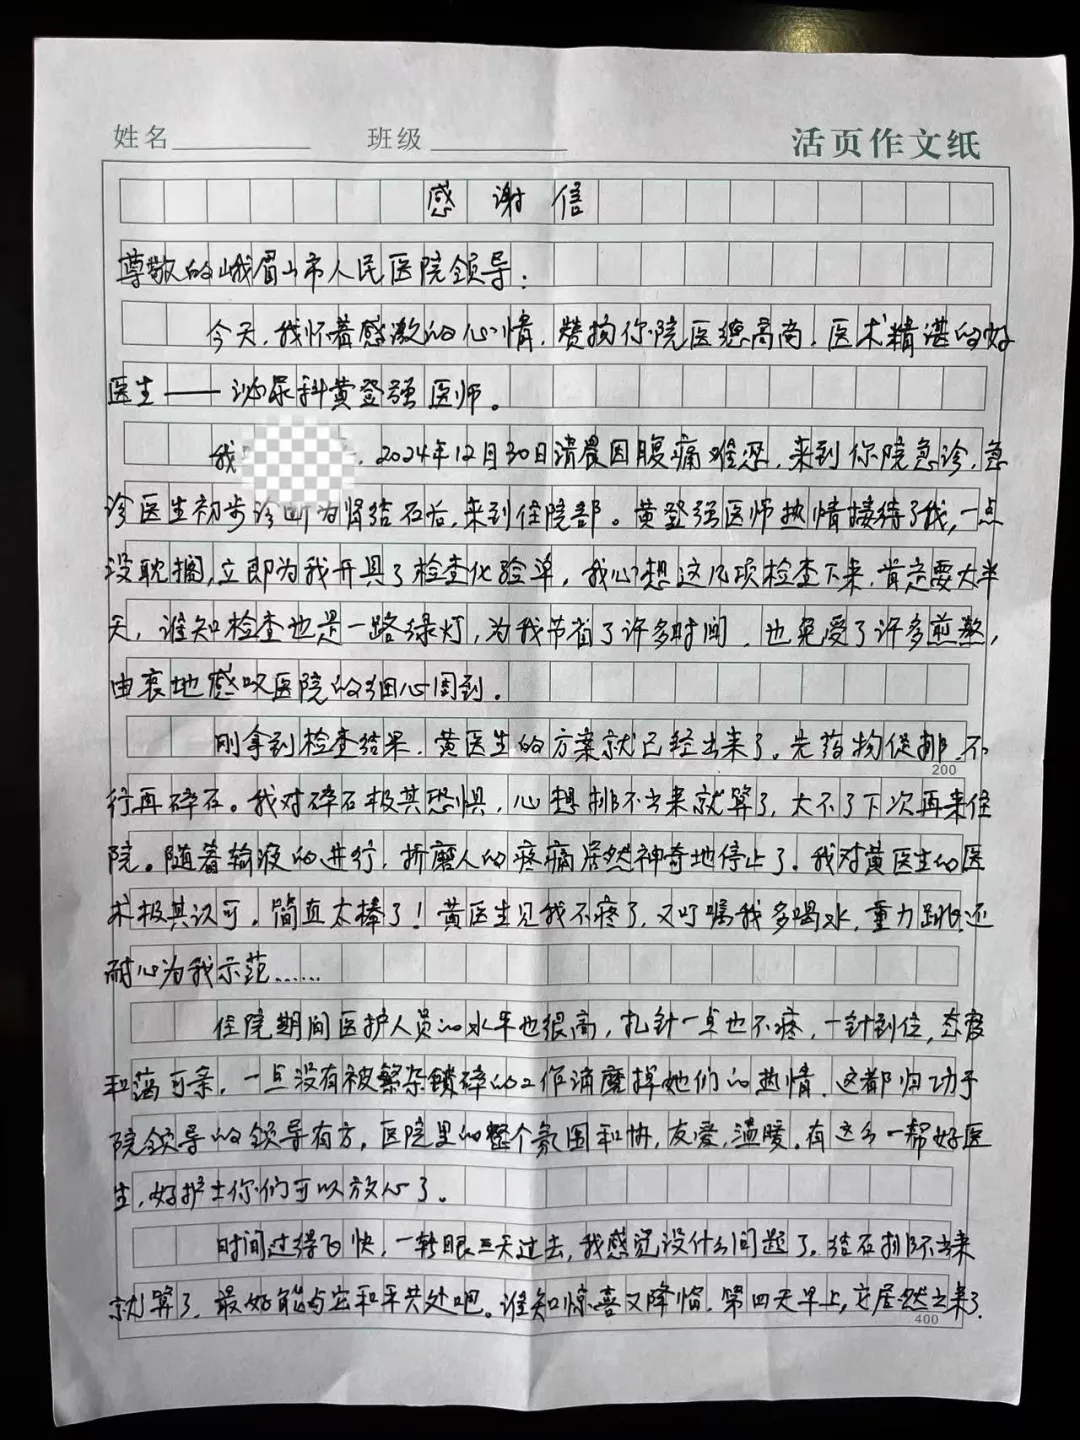 姓名 班级 活页作文纸
感谢信
尊敬的峨眉山市人民医院领导：
今天，我怀着感激的心情，赞扬你院医德高尚，医术精湛的好
医生——泌尿科黄登强医师。
我，2024年12月30日清晨因腹痛难忍，来到你院急诊，急
诊医生初步诊断为肾结石后，来到住院部。黄登强医师热情接待了我，一点
没耽搁，立即为我开具了检查化验单，我心想这几项检查下来，肯定要大半
天，谁知检查也是一路绿灯，为我节省了许多时间，也免受了许多煎熬，
由衷地感叹医院的细心周到。
刚拿到检查结果，黄医生的方案就已经出来了，先药物促排，不
200
行再碎石。我对碎石极其恐惧，心想排不出来就算了，大不了下次再来住
院。随着输液的进行，折磨人的疼痛居然神奇地停止了。我对黄医生的医
术极其认可，简直太棒了！黄医生见我不疼了，又叮嘱我多喝水，重力跳还
耐心为我示范……
住院期间医护人员的水平也很高，扎针一点也不疼，一针到位，态度
和蔼可亲，一点没有被繁杂锁碎的工作消磨掉她们的热情，这都归功于
院领导的领导有方，医院里的整个氛围和协，友爱，温暖，有这么一帮好医
生，好护士你们可以放心了。
时间过得飞快，一转眼三天过去，我感觉没什么问题了，结石排不出来
就算了，最好能与它和平共处吧。谁知惊喜又降临，第四天早上，它居然出来了，
400